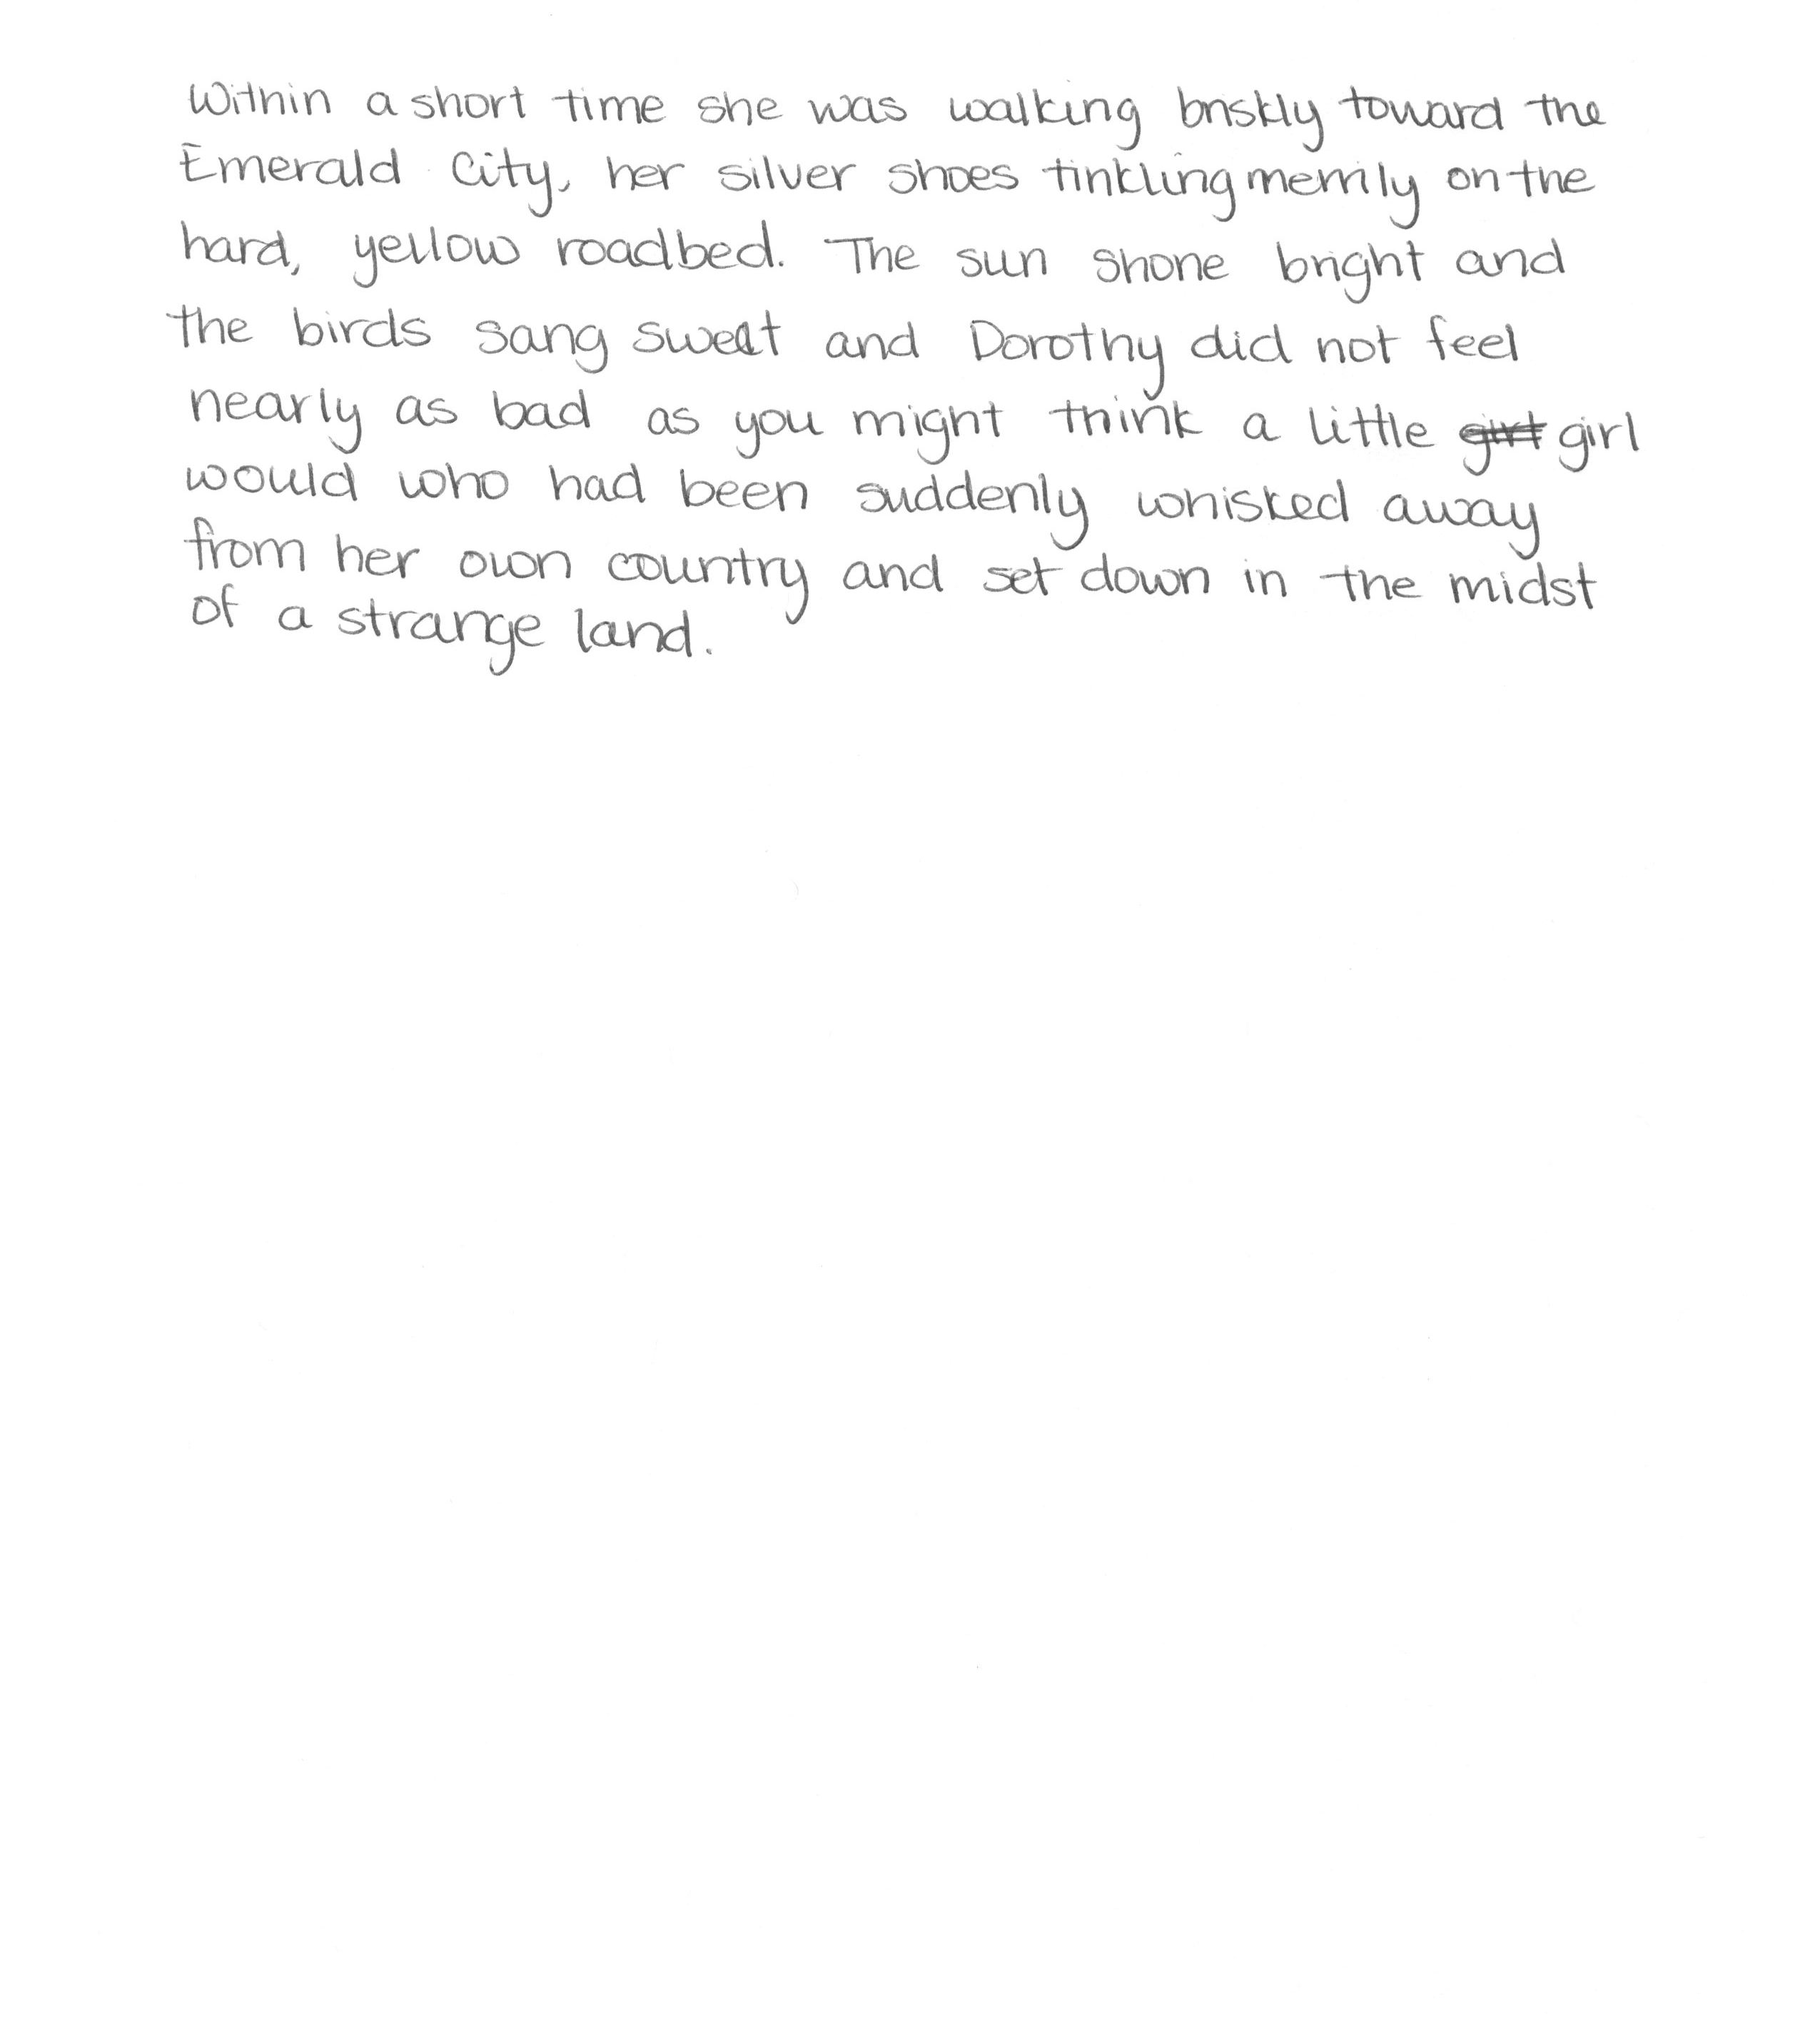 Within a short time she was walking briskly toward the
Emerald City, her silver shoes tinkling merrily on the
hard, yellow roadbed. The sun shone bright and
the birds sang sweet and Dorothy did not feel
nearly as bad as you might think a little girl
would who had been suddenly whisked away
from her own country and set down in the midst
of a strange land.